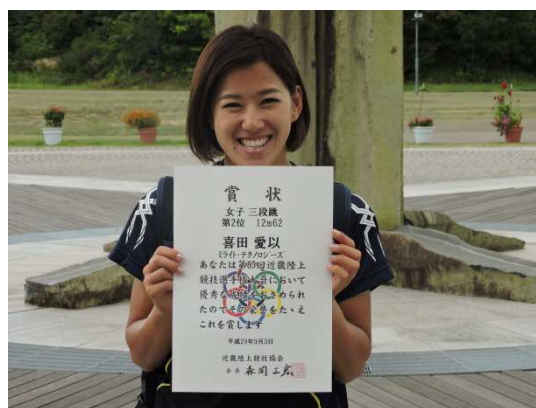 賞状
女子 三段跳
第2位 12m62
喜田 愛以
ミライト・テクノロジーズ
あなたは第85回近畿陸上
競技選手権大会において
優秀な成績をおさめられ
たのでその栄誉をたゝえ
これを賞します
平成29年9月3日
近畿陸上競技協会
会長 森岡正宏